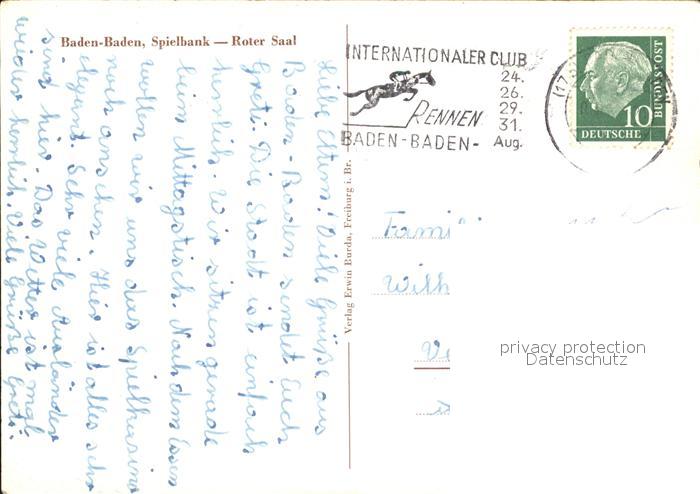 Baden-Baden, Spielbank — Roter Saal
Liebe Eltern! Viele Grüße aus
Baden-Baden sendet Euch
Greti. Die Stadt ist einfach
herrlich. Wir sitzen gerade
beim Mittagstisch. Nach dem Essen
wollen wir uns das Spielkasino
noch anschen. Hier ist alles sehr
elegant. Sehr viele Ausländer
sind hier. Das Wetter ist mgl.
wieder herrlich. Viele Grüße Greti.
Verlag Erwin Burda, Freiburg i. Br.
INTERNATIONALER CLUB
24.
26.
29.
31.
Aug.
RENNEN
BADEN-BADEN-
(17
10
DEUTSCHE
BUNDESPOST
Fami
Wilh
privacy protection
Datenschutz